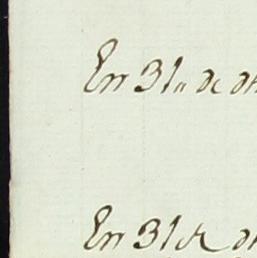 En 31 de
En 31 de